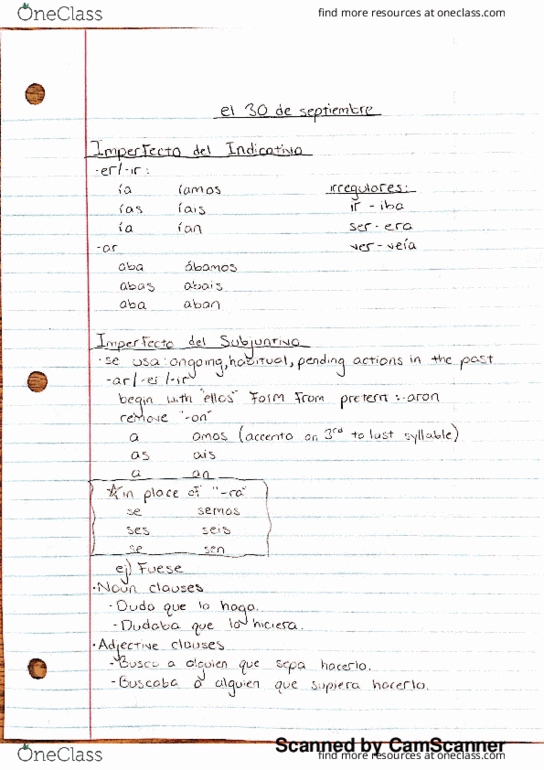 OneClass
find more resources at oneclass.com
el 30 de septiembre
Imperfecto del Indicativo
-er/-ir:
ía íamos irregulares:
ías íais ir - iba
ía ían ser - era
-ar ver - veía
aba ábamos
abas abais
aba aban
Imperfecto del Subjuntivo
· se usa: ongoing, habitual, pending actions in the past
-ar/-er/-ir
begin with "ellos" form from preterit: -aron
remove "-on"
a amos (accento on 3rd to last syllable)
as ais
a an
☆in place of "-ra"
se semos
ses seis
se sen
ej) Fuese
· Noun clauses
- Dudo que lo haga.
- Dudaba que lo hiciera.
· Adjective clauses
- Busco a alguien que sepa hacerlo.
- Buscaba a alguien que supiera hacerlo.
Scanned by CamScanner
OneClass
find more resources at oneclass.com